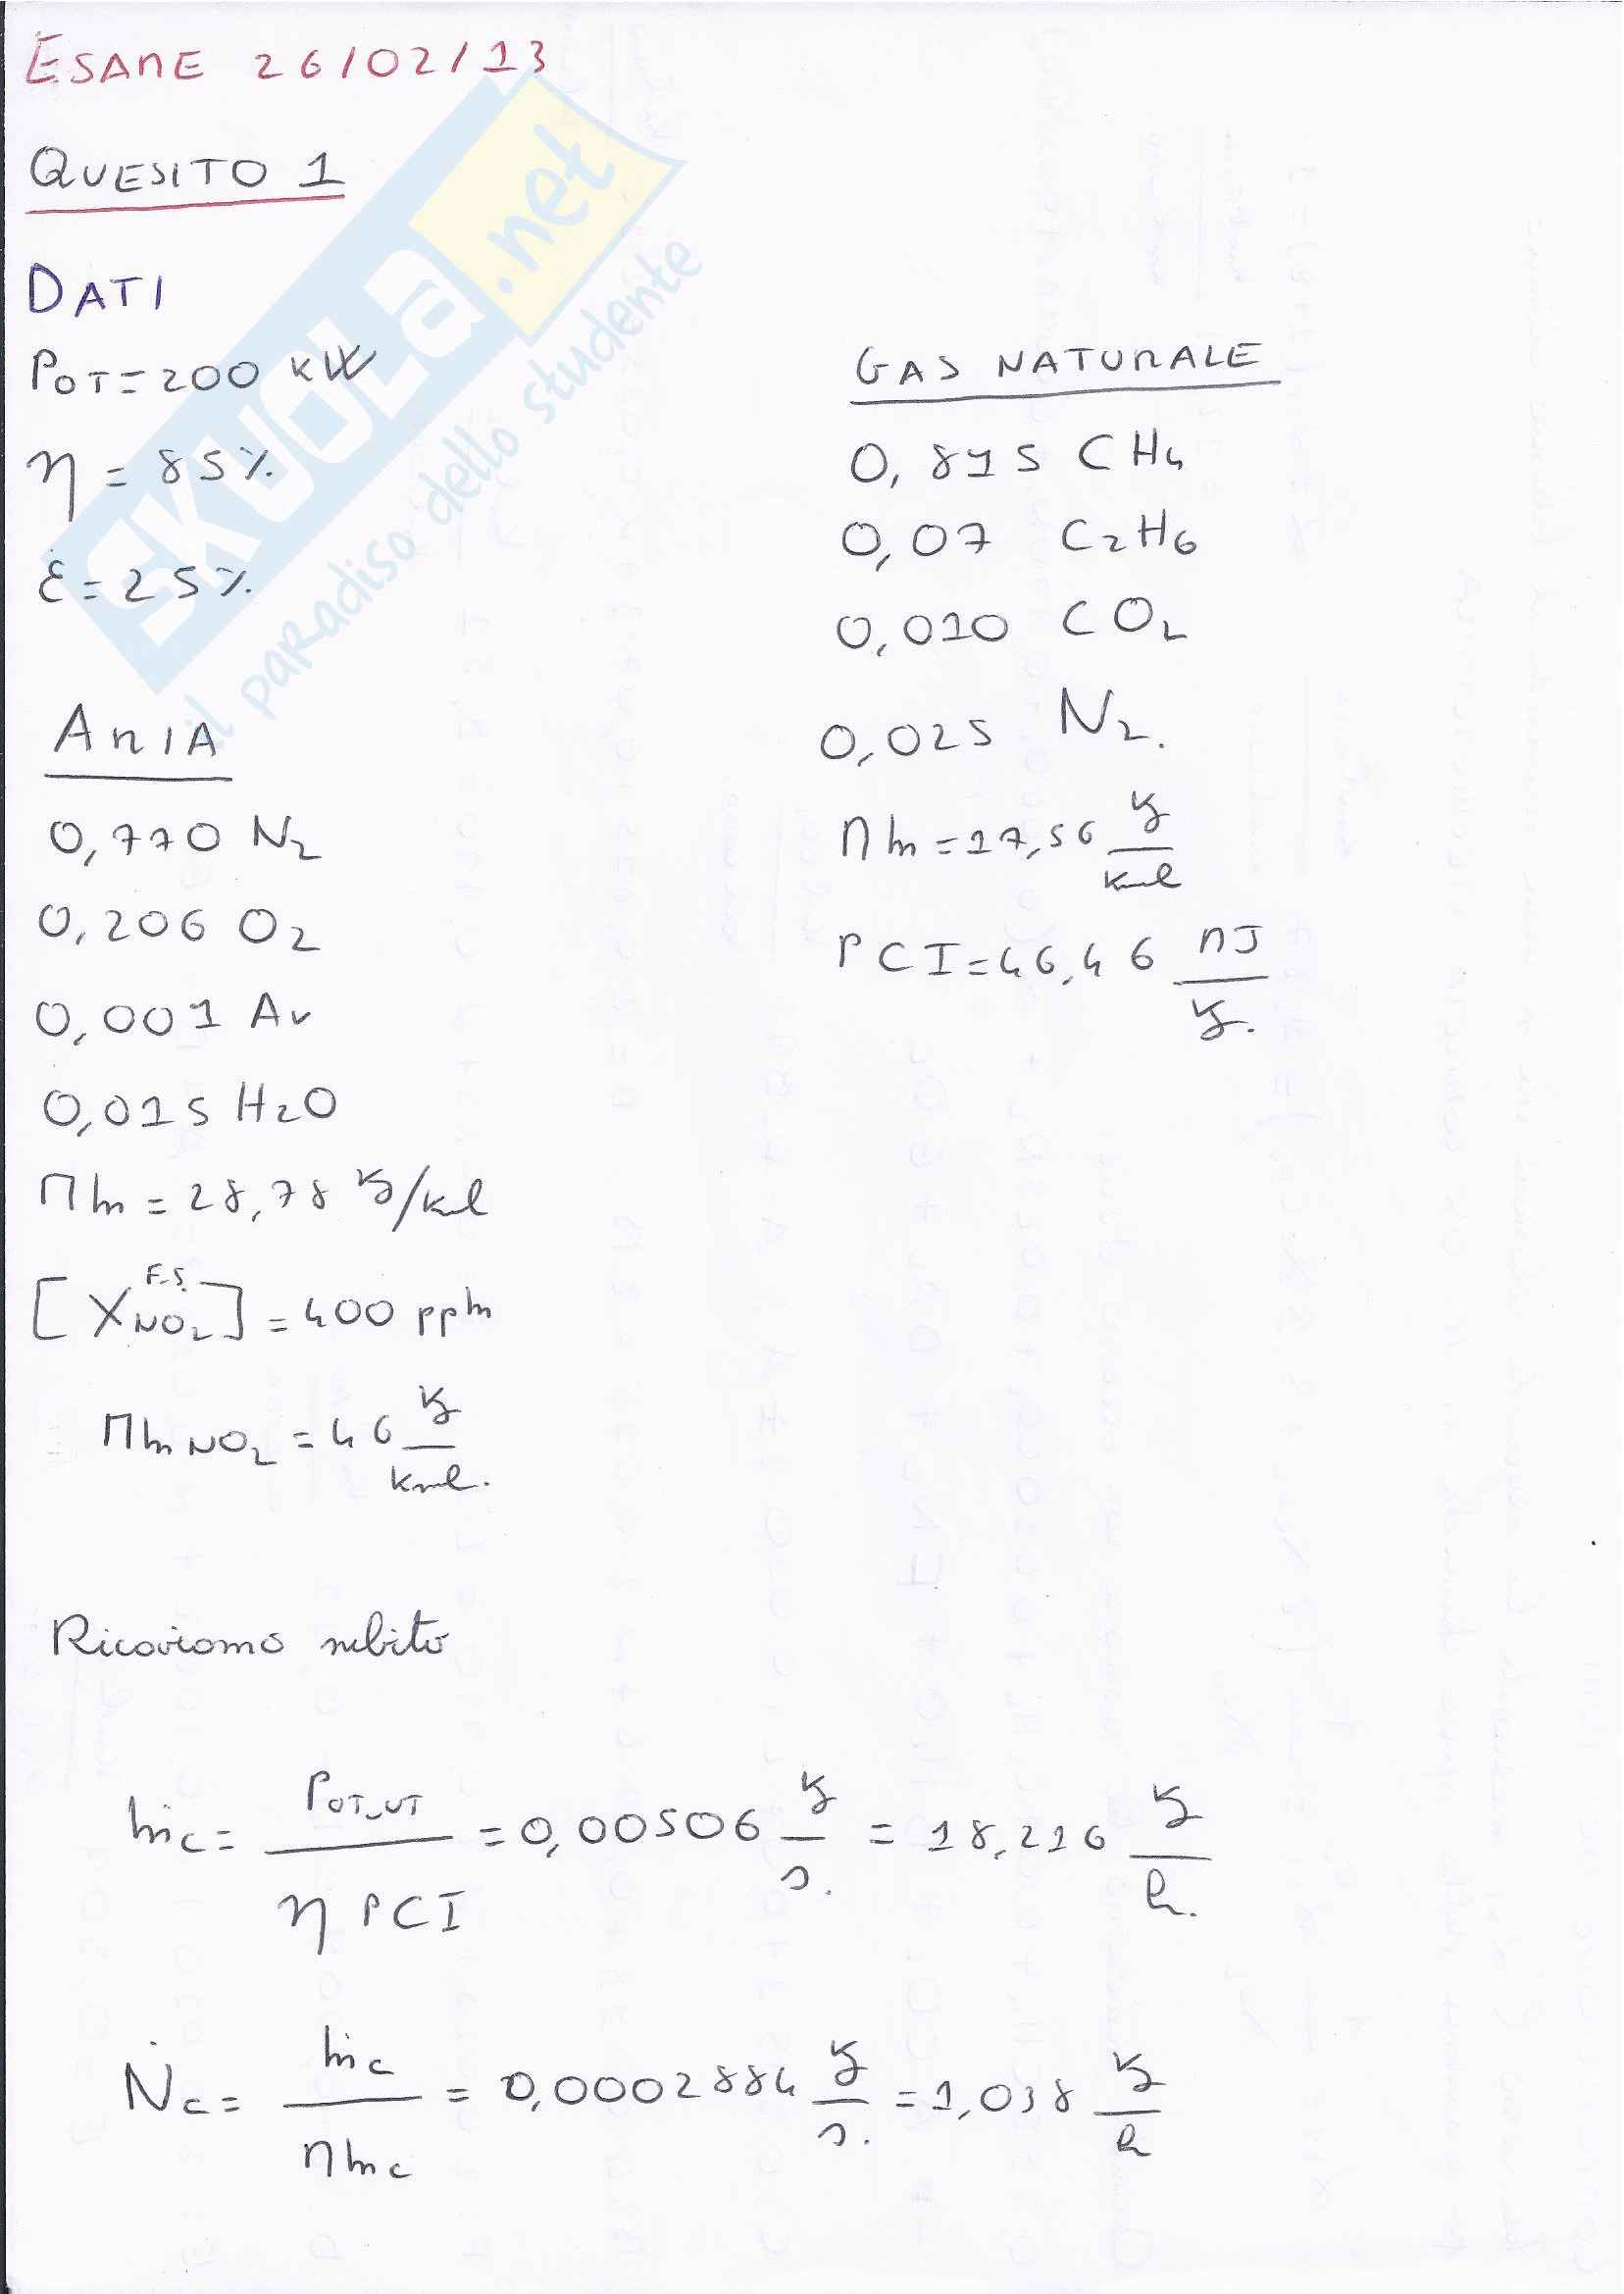 ESAME 26/02/13
QUESITO 1
DATI
POT = 200 kW
η = 85%
ε = 25%
ARIA
0,770 N2
0,206 O2
0,001 Ar
0,015 H2O
Mm = 28,78 kg/kmol
[X NO2 F.S.] = 400 ppm
Mm NO2 = 46 kg/kmol.
GAS NATURALE
0,895 CH4
0,07 C2H6
0,010 CO2
0,025 N2.
Mm = 17,56 kg/kmol
PCI = 46,46 MJ/kg.
Ricaviamo subito
ṁc = POT_UT / η PCI = 0,00506 kg/s. = 18,216 kg/h.
Ṅc = ṁc / Mmc = 0,0002884 kg/s. = 1,038 kg/h
SKUOLA.net
il paradiso dello studente